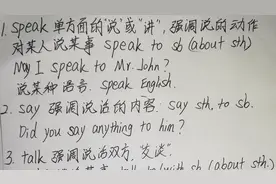 1. speak 单方面的"说"或"讲",强调说的动作
对某人说某事 speak to sb (about sth)
May I speak to Mr. John?
说某种语言. speak English.
2. say 强调说话的内容. say sth, to sb.
Did you say anything to him?
3. talk 强调说话双方,"交谈".